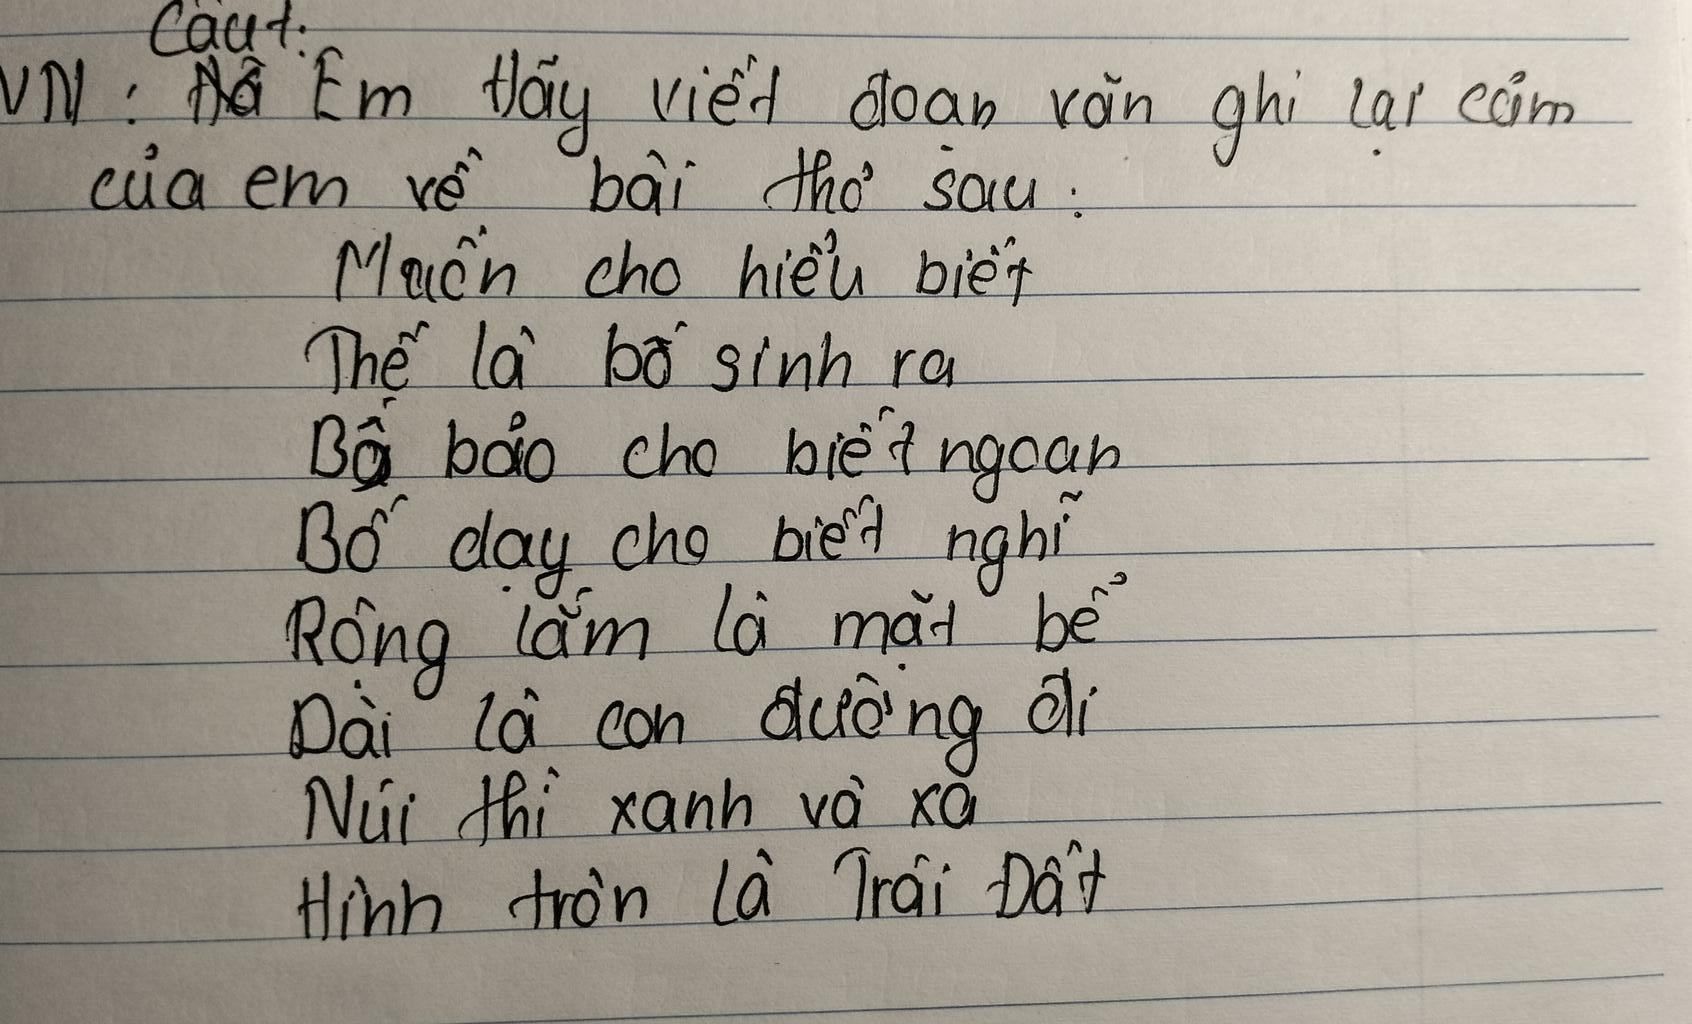 Câu 1:
VN: Em Hãy viết đoạn văn ghi lại cảm
của em về bài thơ sau:
Muốn cho hiểu biết
Thế là bố sinh ra
Bố bảo cho biết ngoan
Bố dạy cho biết nghĩ
Rộng lắm là mặt bể
Dài là con đường đi
Núi thì xanh và xa
Hình tròn là Trái Đất